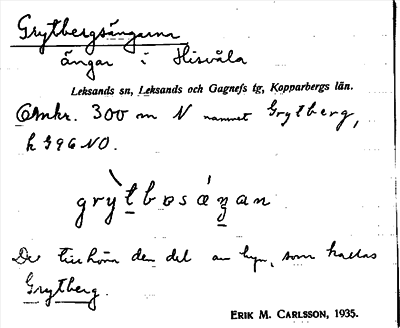 Grytbergsängarna
ängar i Hisvåla
Leksands sn, Leksands och Gagnefs tg, Kopparbergs län.
Omkr. 300 m N namnet Grytberg,
k 99G NO.
grỳtbɒsǽŋan
De tillhöra den del av byn, som kallas
Grytberg.
ERIK M. CARLSSON, 1935.